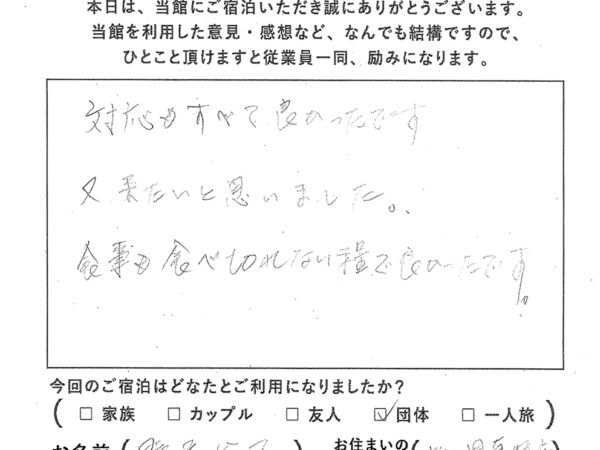 本日は、当館にご宿泊いただき誠にありがとうございます。
当館を利用した意見・感想など、なんでも結構ですので、
ひとこと頂けますと従業員一同、励みになります。
対応もすべて良かったです
又来たいと思いました。
食事も食べ切れない程で良かったです。
今回のご宿泊はどなたとご利用になりましたか?
(□ 家族 □ カップル □ 友人 ☑ 団体 □ 一人旅)
お名前 ( ) お住まいの (